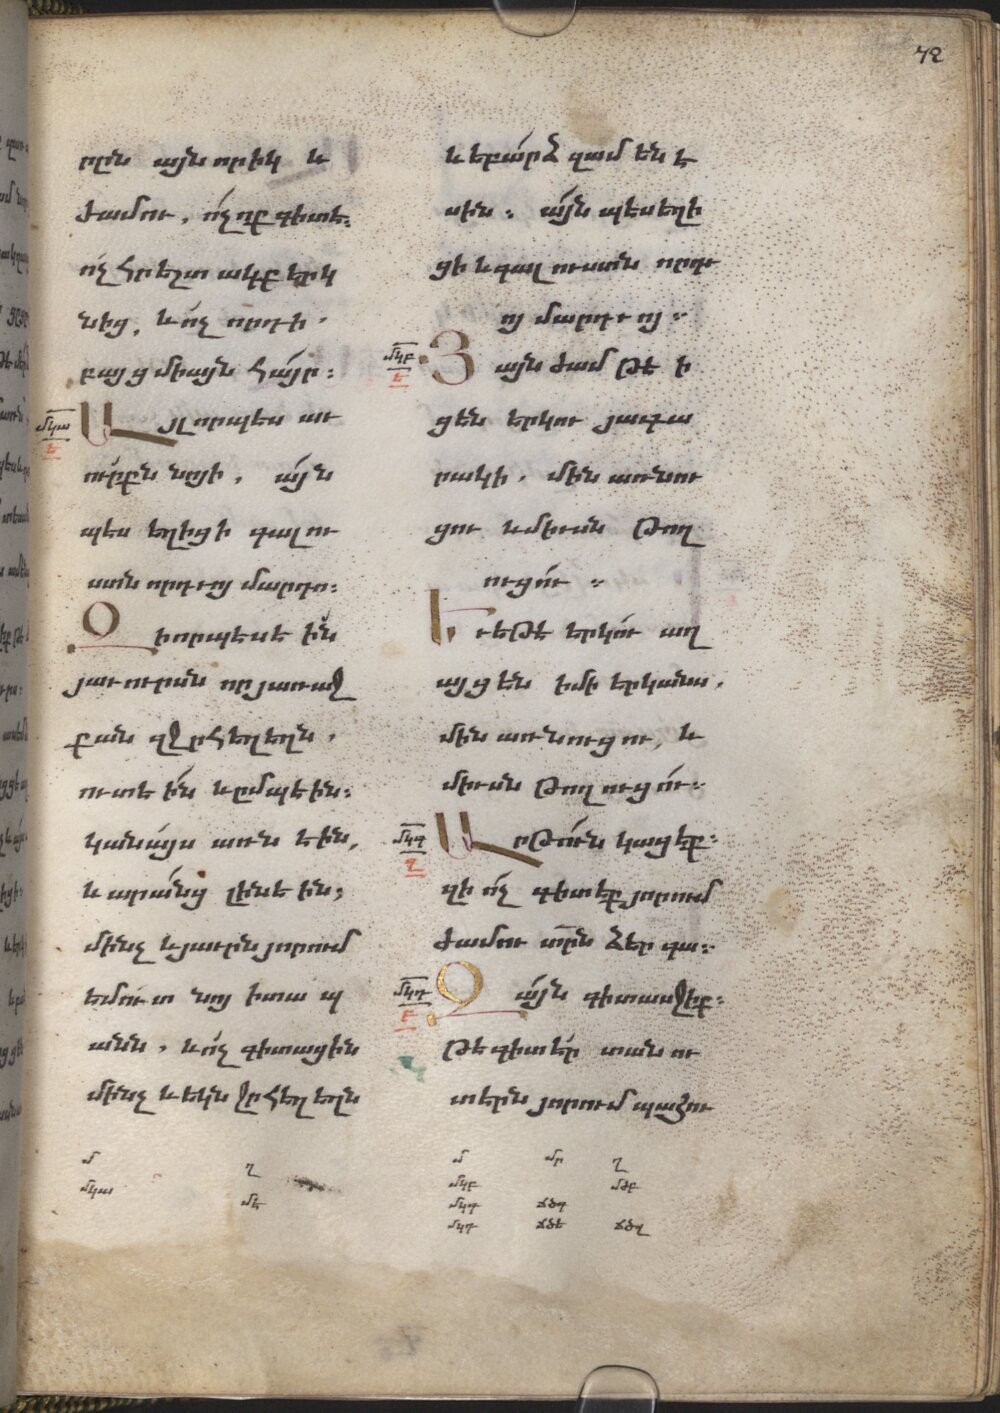 72
րլըն այն որիկ և
ժամու, ո՛չ ոք գիտէ:
ո՛չ հրեշտակք երկ
նից, և ո՛չ որդի.
բայց միայն հա՛յր:
մկա
ե
Այլ որպէս աւ
ուրքն նոյի, ա՛յն
պէս եղիցի գալու
ստն որդւոյ մարդո:
Զի որպէս է ին
յաւուրսն որ յառաջ
քան զջրհեղեղն,
ուտէին և ըմպէին:
կանա՛յս առնէին,
և արա՛նց լինէին:
մինչ և յաւրն յորում
եմո՛ւտ նոյ ի տապ
անն, և ո՛չ գիտացին
մինչև եկն ջրհեղեղն
և եբա՛րձ զամենե
սին: ա՛յնպէս եղի
ցի և գալուստն որդւ
ոյ մարդւոյ:
մկբ
ե
Յայնժամ թէ ի
ցեն երկու յագա
րակի. մինն առնու
ցու և միւսն թող
ուցու:
Եւ եթէ երկու աղ
այցեն ի մի երկանս,
մինն առնուցու, և
միւսն թողուցու:
մկգ
զ
Արթո՛ւն կացէք:
զի ո՛չ գիտէք յորում
ժամու տրն ձեր գա:
մկդ
բ
Զա՛յն գիտասջիք:
թէ գիտէր տանու
տէրն յորում պահու
մ ղ
մկա մե
մ մր ղ
մկբ մթբ
մկգ ճծգ
մկդ ճծե ճծզ